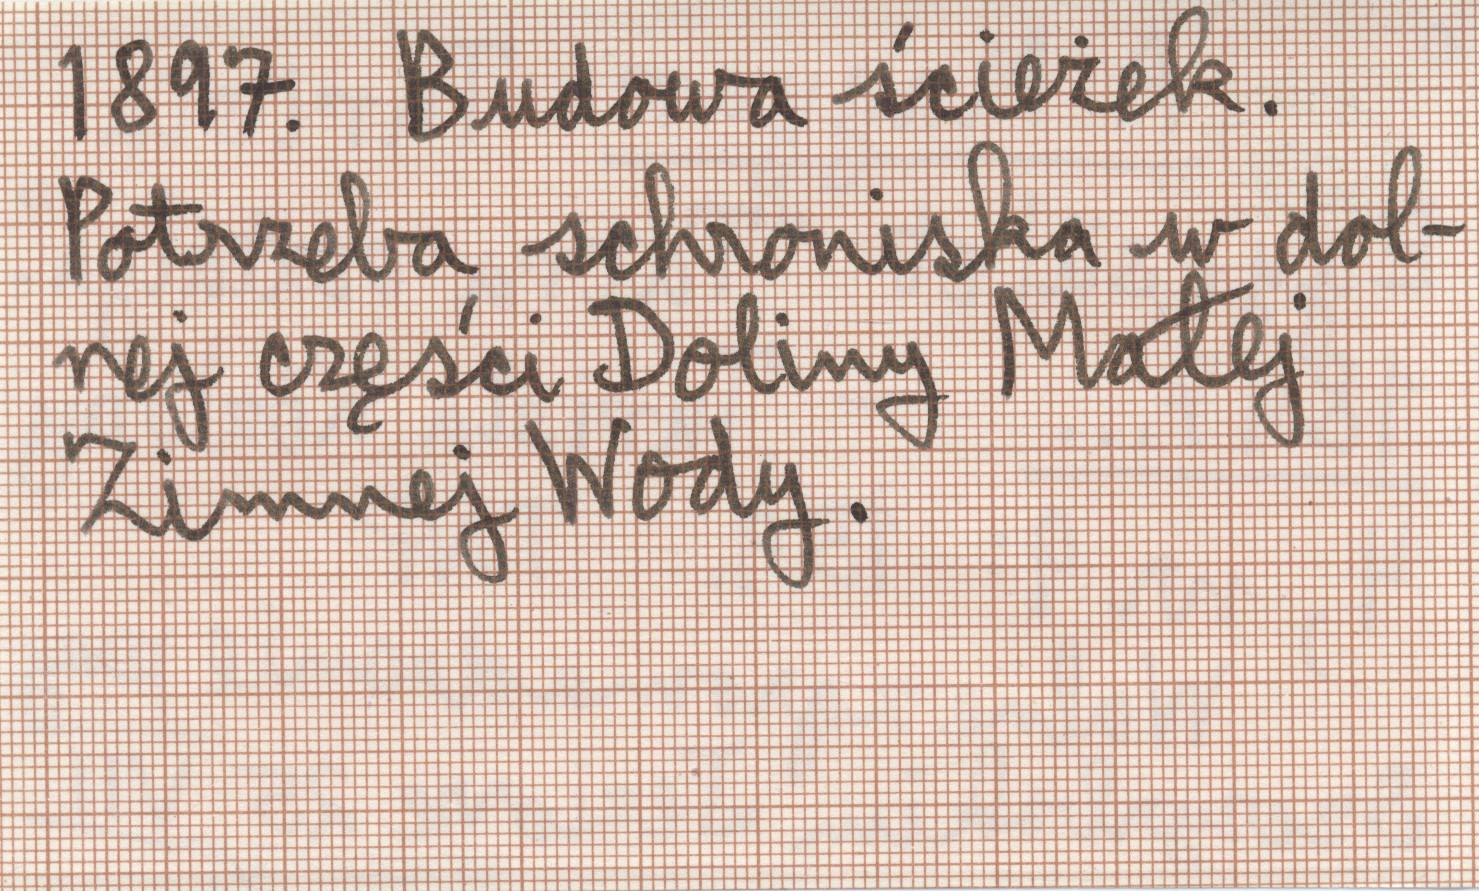 1897. Budowa ścieżek.
Potrzeba schroniska w dol-
nej części Doliny Małej
Zimnej Wody.